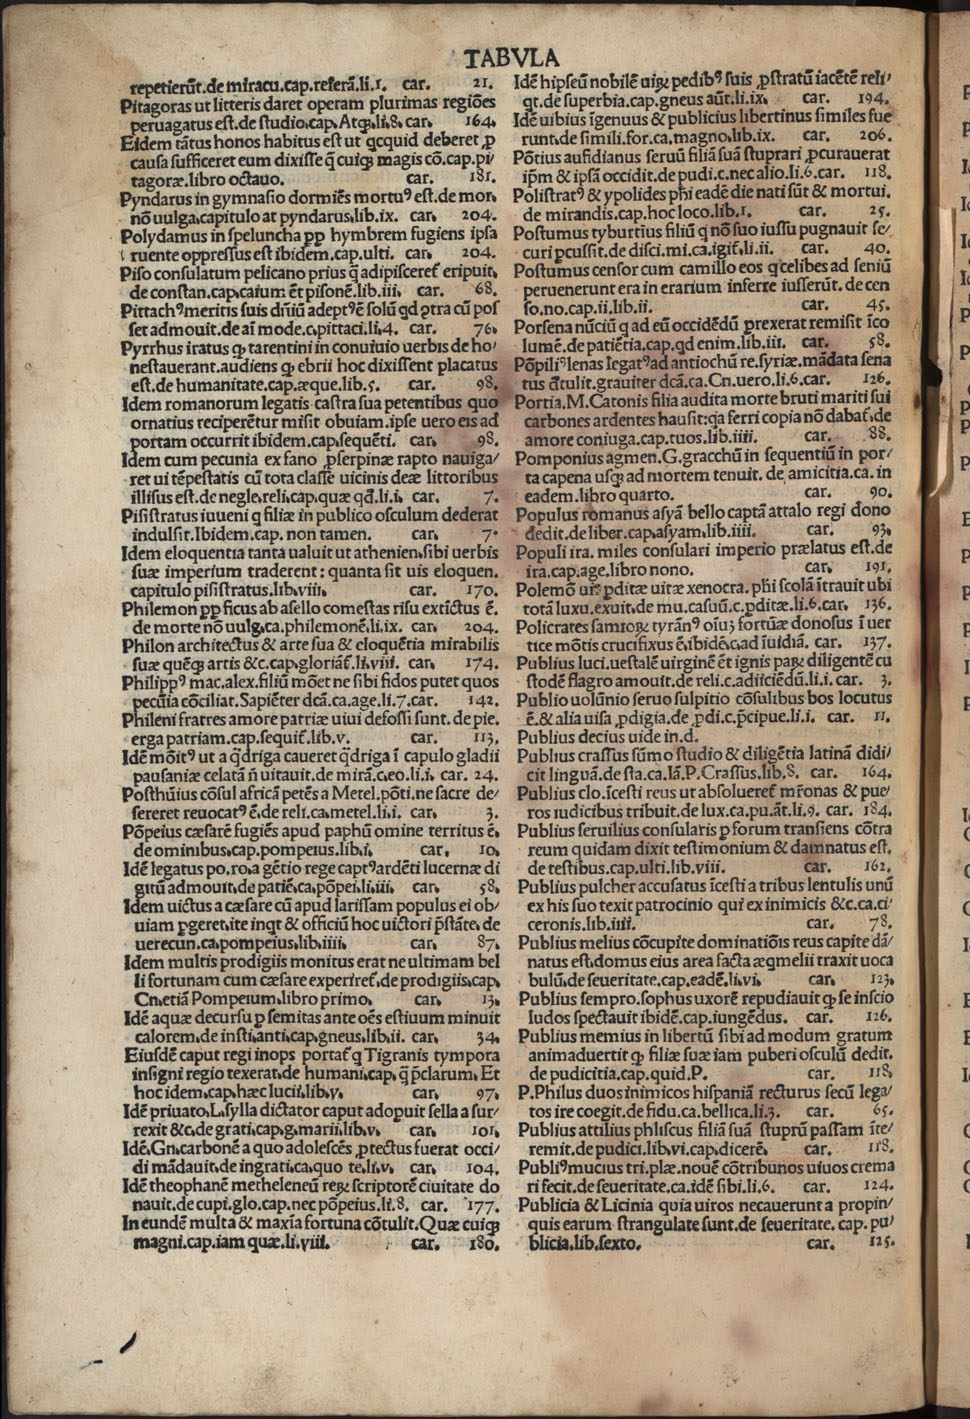 TABVLA
repetierūt.de miracu.cap.referā.li.1. car. 21.
Pitagoras ut litteris daret operam plurimas regiōes
peruagatus est.de studio.cap.Atqꝫ.li.8. car. 164.
Eidem tātus honos habitus est ut qcquid deberet ꝓ
causa sufficeret eum dixisse q̄ cuiqꝫ magis cō.cap.pi/
tagoræ.libro octauo. car. 181.
Pyndarus in gymnasio dormiēs mortuꝰ est.de mor.
nō uulga.capitulo at pyndarus.lib.ix. car. 204.
Polydamus in speluncha ꝓp hymbrem fugiens ipsa
ruente oppressus est ibidem.cap.ulti. car. 204.
Piso consulatum pelicano prius q̄ adipisceret̃ eripuit.
de constan.cap.caium ēt pisonē.lib.iii. car. 68.
Pittachꝰ meritis suis diuiū adeptꝰ ē solū qd ꝯtra cū pos
set admouit.de aī mode.c.pittaci.li.4. car. 76.
Pyrrhus iratus qꝫ tarentini in conuiuio uerbis de ho/
nestauerant.audiens qꝫ ebrii hoc dixissent placatus
est.de humanitate.cap.æque.lib.5. car. 98.
Idem romanorum legatis castra sua petentibus quo
ornatius reciperētur misit obuiam.ipse uero eis ad
portam occurrit ibidem.cap.sequēti. car. 98.
Idem cum pecunia ex fano ꝓserpinæ rapto nauiga/
ret ui tēpestatis cū tota classe uicinis deæ littoribus
illisus est.de negle.reli.cap.quæ qd̄.li.i. car. 7.
Pisistratus iuueni q filiæ in publico osculum dederat
indulsit.Ibidem.cap. non tamen. car. 7.
Idem eloquentia tanta ualuit ut athenien.sibi uerbis
suæ imperium traderent: quanta sit uis eloquen.
capitulo pisistratus.lib.viii. car. 170.
Philemon ꝓp ficus ab asello comestas risu extīctus ē.
de morte nō uulg.ca.philemonē.li.ix. car. 204.
Philon architectus & arte sua & eloquētia mirabilis
suæ quēqꝫ artis &c.cap.gloriāt̃.li.viii. car. 174.
Philippꝰ mac.alex.filiū mōet ne sibi fidos putet quos
pecūia cōciliat.Sapiēter dcā.ca.age.li.7.car. 142.
Phileni fratres amore patriæ uiui defossi sunt.de pie.
erga patriam.cap.sequit̃.lib.v. car. 113.
Idē mōitꝰ ut a q̄driga caueret q̄driga ī capulo gladii
pausaniæ celatā n̄ uitauit.de mirā.c.eo.li.i. car. 24.
Posthūius cōsul africā petēs a Metel.pōti.ne sacre de/
sereret reuocatꝰ ē.de reli.ca.metel.li.i. car. 3.
Pōpeius cæsarē fugiēs apud paphū omine territus ē.
de ominibus.cap.pompeius.lib.i. car. 10.
Idē legatus po.ro.a gētio rege captꝰ ardēti lucernæ di
gitū admouit.de patiē.ca.pōpei.li.iii. car. 58.
Idem uictus a cæsare cū apud larissam populus ei ob/
uiam ꝑgeret.ite inqt & officiū hoc uictori p̄state.de
uerecun.ca.pompeius.lib.iiii. car. 87.
Idem multis prodigiis monitus erat ne ultimam bel
li fortunam cum cæsare experiret̃.de prodigiis.cap.
Cn.etiā Pompeium.libro primo. car. 13.
Idē aquæ decursu ꝑ semitas ante oēs estiuum minuit
calorem.de insti.anti.cap.gneus.lib.ii. car. 34.
Eiusdē caput regi inops portat̃ q Tigranis tympora
insigni regio texerat.de humani.cap. q̄ p̄clarum. Et
hoc idem.cap.hæc lucii.lib.v. car. 97.
Idē priuato.L.sylla dictator caput adopuit sella assur/
rexit &c.de grati.cap.g.marii.lib.v. car. 101.
Idē.Gn.carbonē a quo adolescēs ꝓtectus fuerat occi/
di mādauit.de ingrati.ca.quo te.li.v. car. 104.
Idē theophanē metheleneū reꝝ scriptorē ciuitate do
nauit.de cupi.glo.cap.nec pōpeius.li.8. car. 177.
In eundē multa & maxīa fortuna cōtulit.Quæ cuiqꝫ
magni.cap.iam quæ.li.viii. car. 180.
Idē hipseū nobilē uiꝝ pedibꝰ suis ꝓstratū iacētē reli/
qt.de superbia.cap.gneus aūt.li.ix. car. 194.
Idē uibius īgenuus & publicius libertinus similes fue
runt.de simili.for.ca.magno.lib.ix. car. 206.
Pōtius aufidianus seruū filiā suā stuprari ꝓcurauerat
ip̄m & ipsā occidit.de pudi.c.nec alio.li.6.car. 118.
Polistratꝰ & ypolides phi eadē die nati sūt & mortui.
de mirandis.cap.hoc loco.lib.1. car. 25.
Postumus tyburtius filiū q nō suo iussu pugnauit se/
curi ꝑcussit.de disci.mi.ca.igit̃.li.ii. car. 40.
Postumus censor cum camillo eos q celibes ad seniū
peruenerunt era in erarium inferre iusserūt. de cen
so.no.cap.ii.lib.ii. car. 45.
Porsena nūciū q ad eū occidēdū ꝓrexerat remisit īco
lumē.de patiētia.cap.qd enim.lib.iii. car. 58.
Pōpiliꝰ lenas legatꝰ ad antiochū re.syriæ.mādata sena
tus d̄tulit.grauiter dcā.ca.Cn.uero.li.6.car. 126.
Portia.M.Catonis filia audita morte bruti mariti sui
carbones ardentes hausit:qa ferri copia nō dabat̃.de
amore coniuga.cap.tuos.lib.iiii. car. 88.
Pomponius agmen.G.gracchū in sequentiū in por/
ta capena usqꝫ ad mortem tenuit. de amicitia.ca. in
eadem.libro quarto. car. 90.
Populus romanus asyā bello captā attalo regi dono
dedit.de liber.cap.asyam.lib.iiii. car. 93.
Populi ira. miles consulari imperio prælatus est.de
ira.cap.age.libro nono. car. 191.
Polemō uir ꝑditæ uitæ xenocra. phi scolā ītrauit ubi
totā luxu.exuit.de mu.casuū.c.ꝑditæ.li.6.car. 136.
Policrates samioꝝ tyrānꝰ oīuꝫ fortūæ donosus ī uer
tice mōtis crucifixus ē.ibidē.c.ad īuidiā. car. 137.
Publius luci.uestalē uirginē ēt ignis paꝝ diligentē cu
stodē flagro amouit.de reli.c.adiiciēdū.li.i. car. 3.
Publio uolūnio seruo sulpitio cōsulibus bos locutus
ē.& alia uisa ꝓdigia.de ꝓdi.c.p̄cipue.li.i. car. 11.
Publius decius uide in.d.
Publius crassus sūmo studio & diligētia latinā didi/
cit linguā.de sta.ca.Iā.P.Crassus.lib.8. car. 164.
Publius clo.īcesti reus ut absolueret̃ mr̄onas & pue/
ros iudicibus tribuit.de lux.ca.pu.āt.li.9. car. 184.
Publius seruilius consularis ꝑ forum transiens cōtra
reum quidam dixit testimonium & damnatus est.
de testibus.cap.ulti.lib.viii. car. 162.
Publius pulcher accusatus īcesti a tribus lentulis unū
ex his suo texit patrocinio qui ex inimicis &c.ca.ci/
ceronis.lib.iiii. car. 78.
Publius melius cōcupite dominatiōis reus capite dā/
natus est.domus eius area facta æqmelii traxit uoca
bulū.de seueritate.cap.eadē.li.vi. car. 123.
Publius sempro.sophus uxorē repudiauit qꝫ se inscio
ludos spectauit ibidē.cap.iungēdus. car. 126.
Publius memius in libertū sibi ad modum gratum
animaduertit qꝫ filiæ suæ iam puberi osculū dedit.
de pudicitia.cap.quid.P. car. 118.
P.Philus duos inimicos hispaniā recturus secū lega/
tos ire coegit.de fidu.ca.bellica.li.3. car. 65.
Publius attilius phliscus filiā suā stuprū passam īte/
remit.de pudici.lib.vi.cap.dicerē. car. 118.
Publiꝰ mucius tri.plæ.nouē cōtribunos uiuos crema
ri fecit.de seueritate.ca.idē sibi.li.6. car. 124.
Publicia & Licinia quia uiros necauerunt a propin/
quis earum strangulate sunt.de seueritate. cap. pu/
blicia.lib.sexto. car. 125.